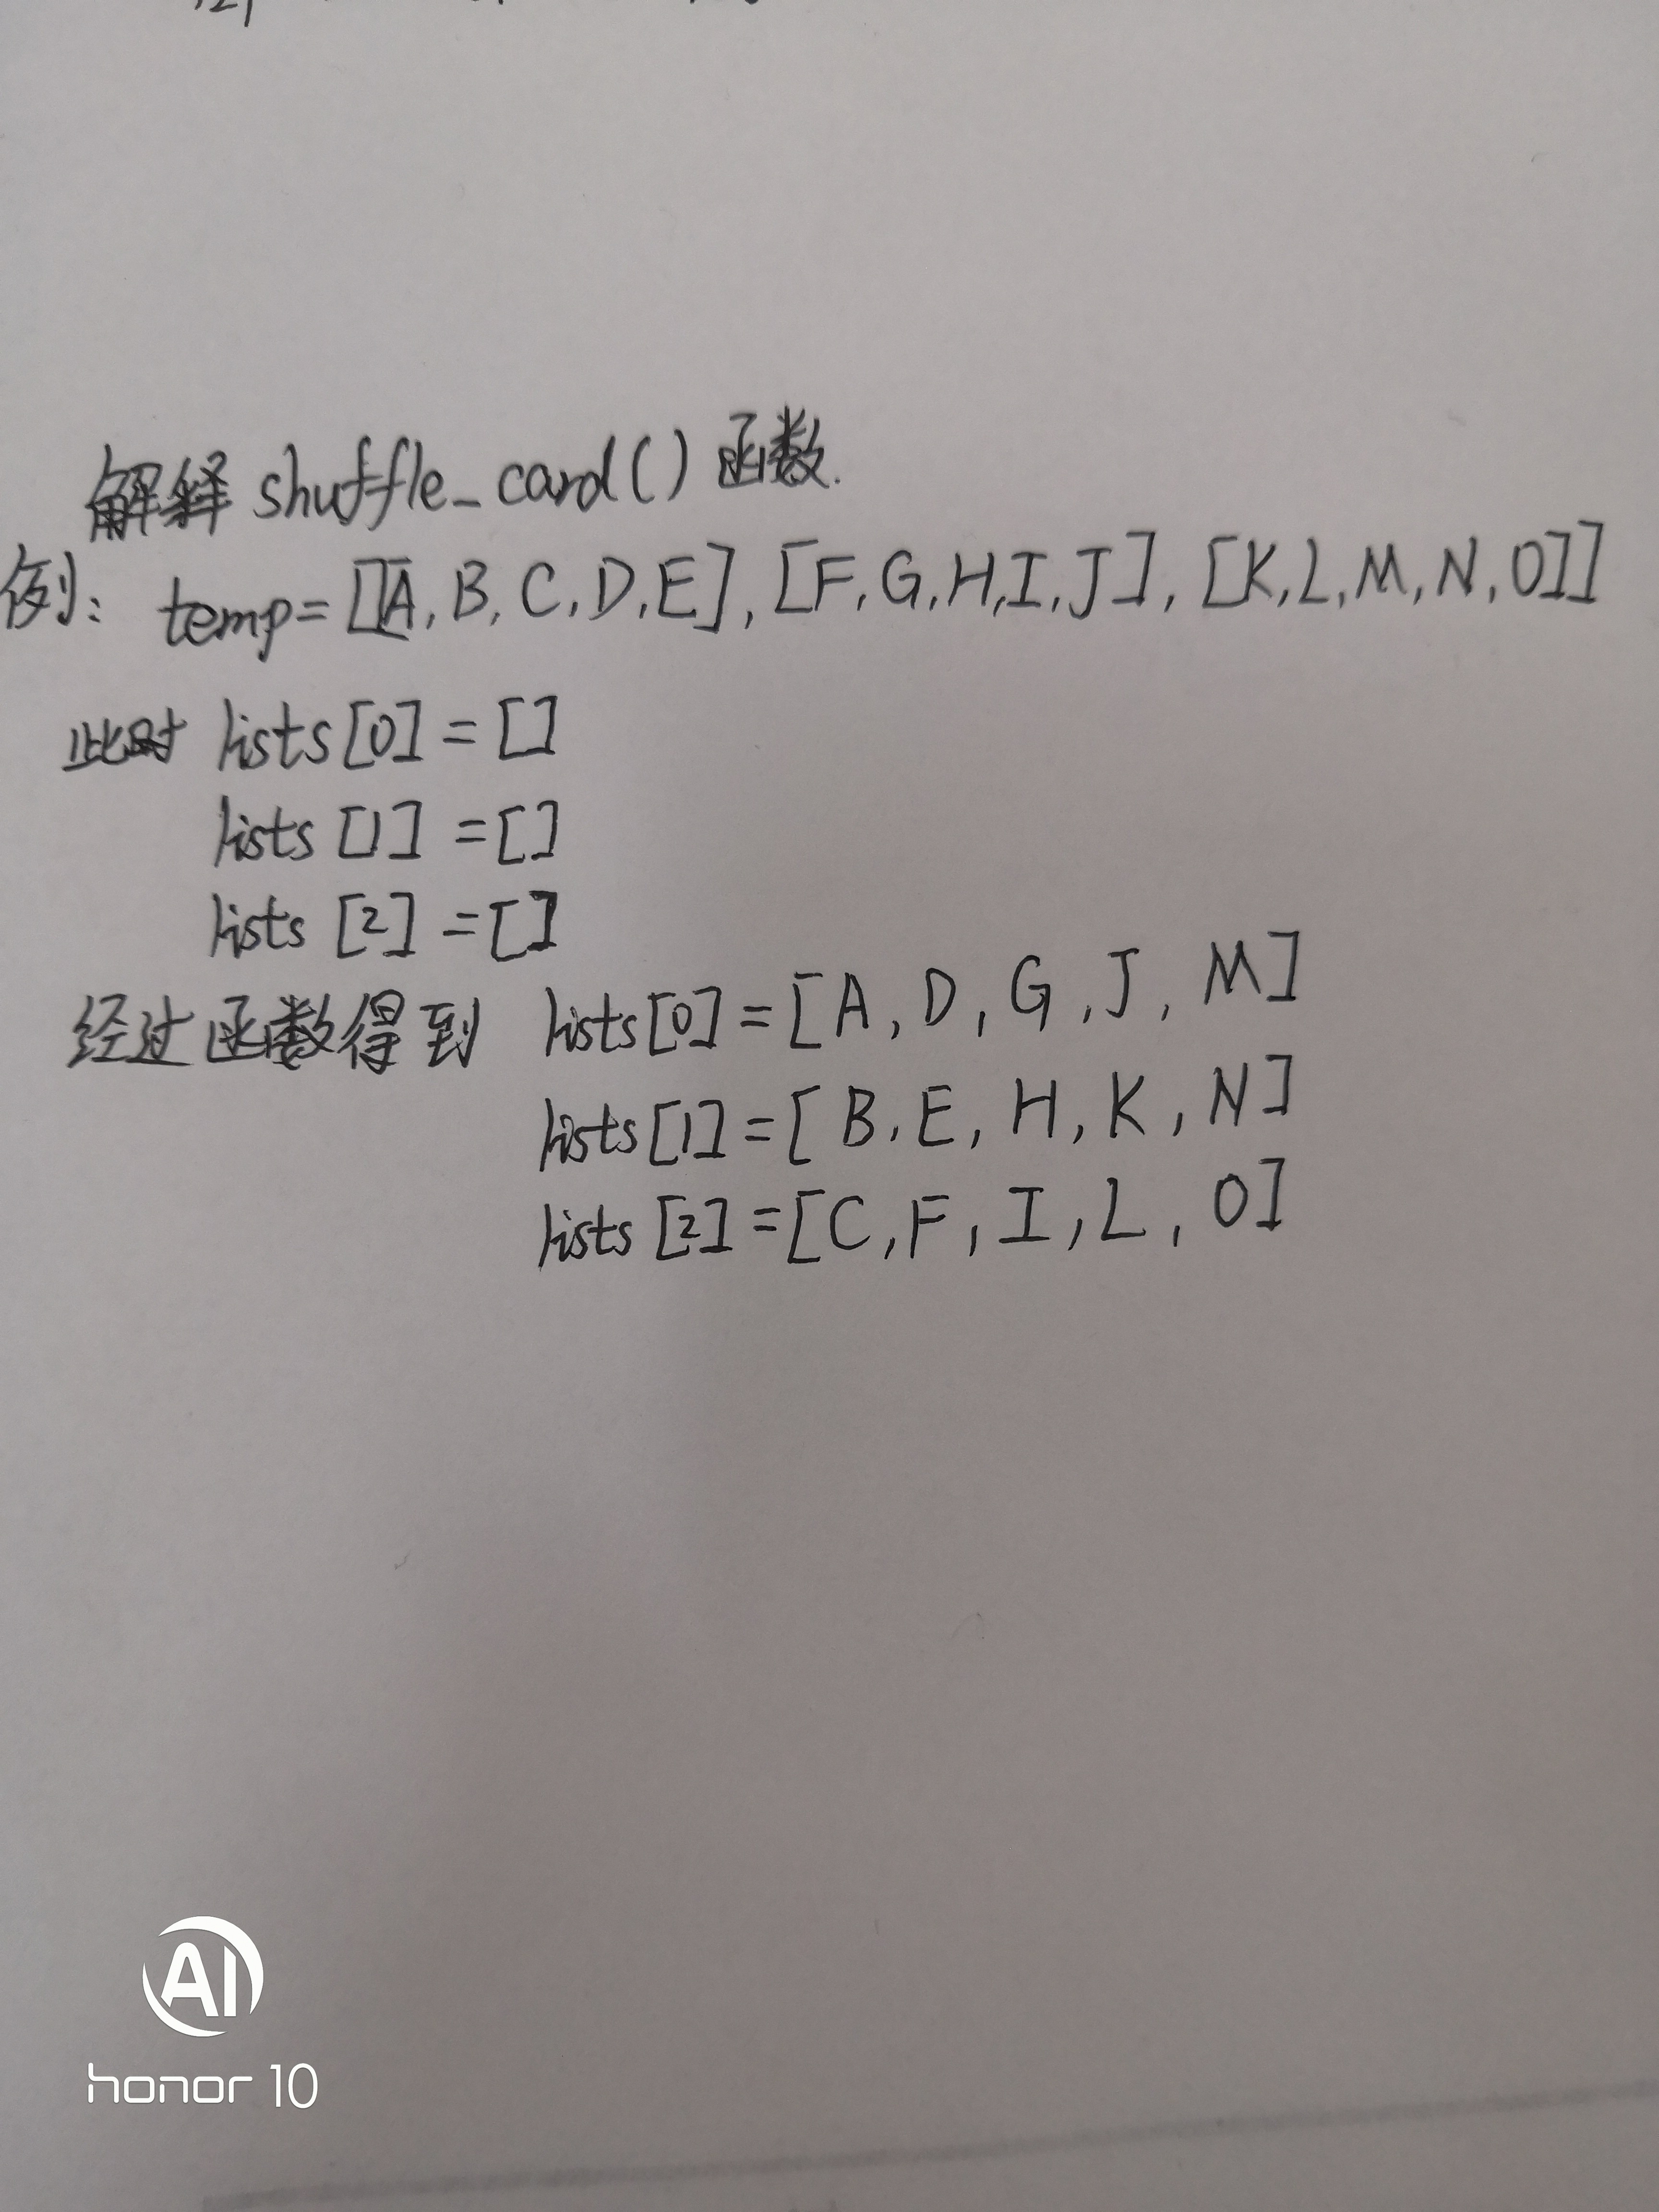 解释 shuffle_card() 函数.
例: temp=[[A, B, C, D, E], [F, G, H, I, J], [K, L, M, N, O]]
此时 lists[0] = []
lists [1] = []
lists [2] = []
经过函数得到 lists[0] = [A, D, G, J, M]
lists [1] = [B, E, H, K, N]
lists [2] = [C, F, I, L, O]
AI
honor 10